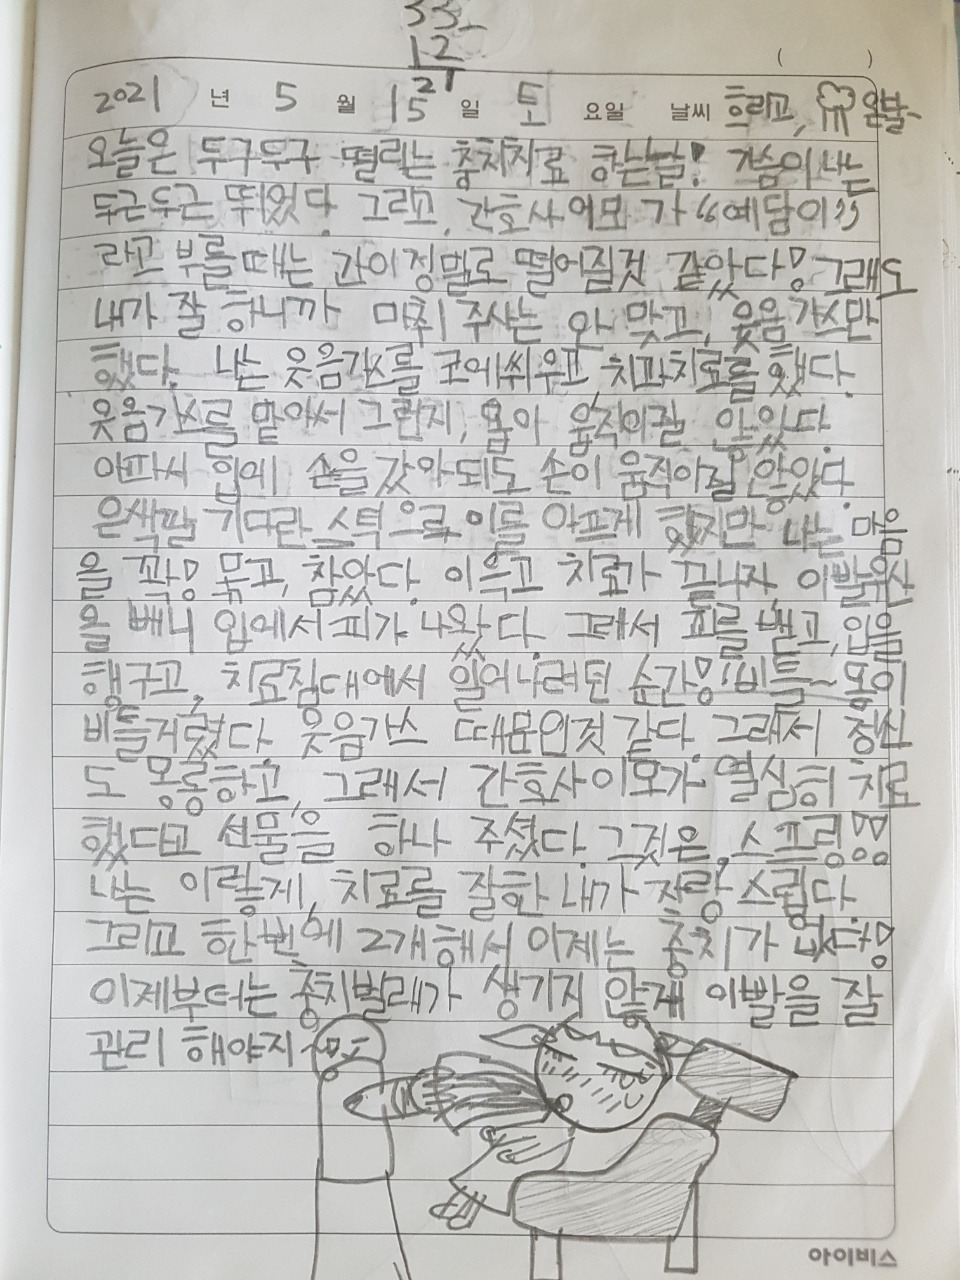 33-
12
21
(          )
2021 년 5 월 15 일 토 요일 날씨 흐리고,
오늘은 두구두구 떨리는 충치치료 하는날! 가슴이 나는
두근두근 뛰었다. 그리고, 간호사 이모 가 "예담이"
라고 부를때는 간이정말로 떨어질것 같았다! 그래도
내가 잘 하니까 마취 주사는 안 맞고, 웃음가스만
했다. 나는 웃음가스를 코에씌우고, 치과치료를 했다.
웃음가스를 맡아서 그런지, 몸이 움직이질 않았다.
아파서 입에 손을 갔아되도 손이 움직이질 않았다.
은색깔 기다란 스틱으로 이를 아프게 했지만 나는 마음
을 꽉 묶고, 참았다. 이윽고 치료가 끝나자, 이빨우산
을 빼니 입에서 피가 나왔다. 그래서 피를 뱉고, 입을
행구고, 치료침대에서 일어나려던 순간! 비틀~ 몸이
비틀거렸다. 웃음가스 때문인것 같다. 그래서 정신
도 몽롱하고, 그래서 간호사이모가 열심히 치료
했다고 선물을 하나 주셨다. 그것은, 스프링!!
나는 이렇게, 치료를 잘한 내가 자랑스럽다.
그리고 한번에 2개해서 이제는 충치가 없다!
이제부터는 충치벌래가 생기지 않게 이빨을 잘
관리 해야지~
아이비스